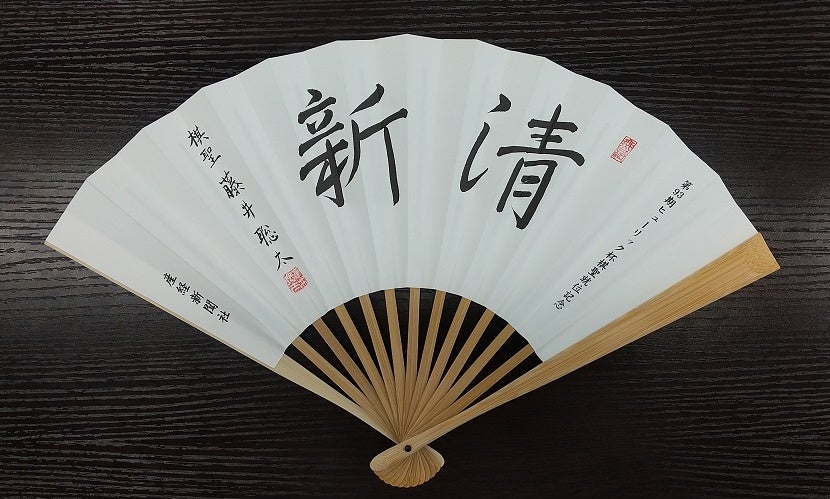 第93期ヒューリック杯棋聖就位記念
清新
棋聖 藤井聡太
産経新聞社